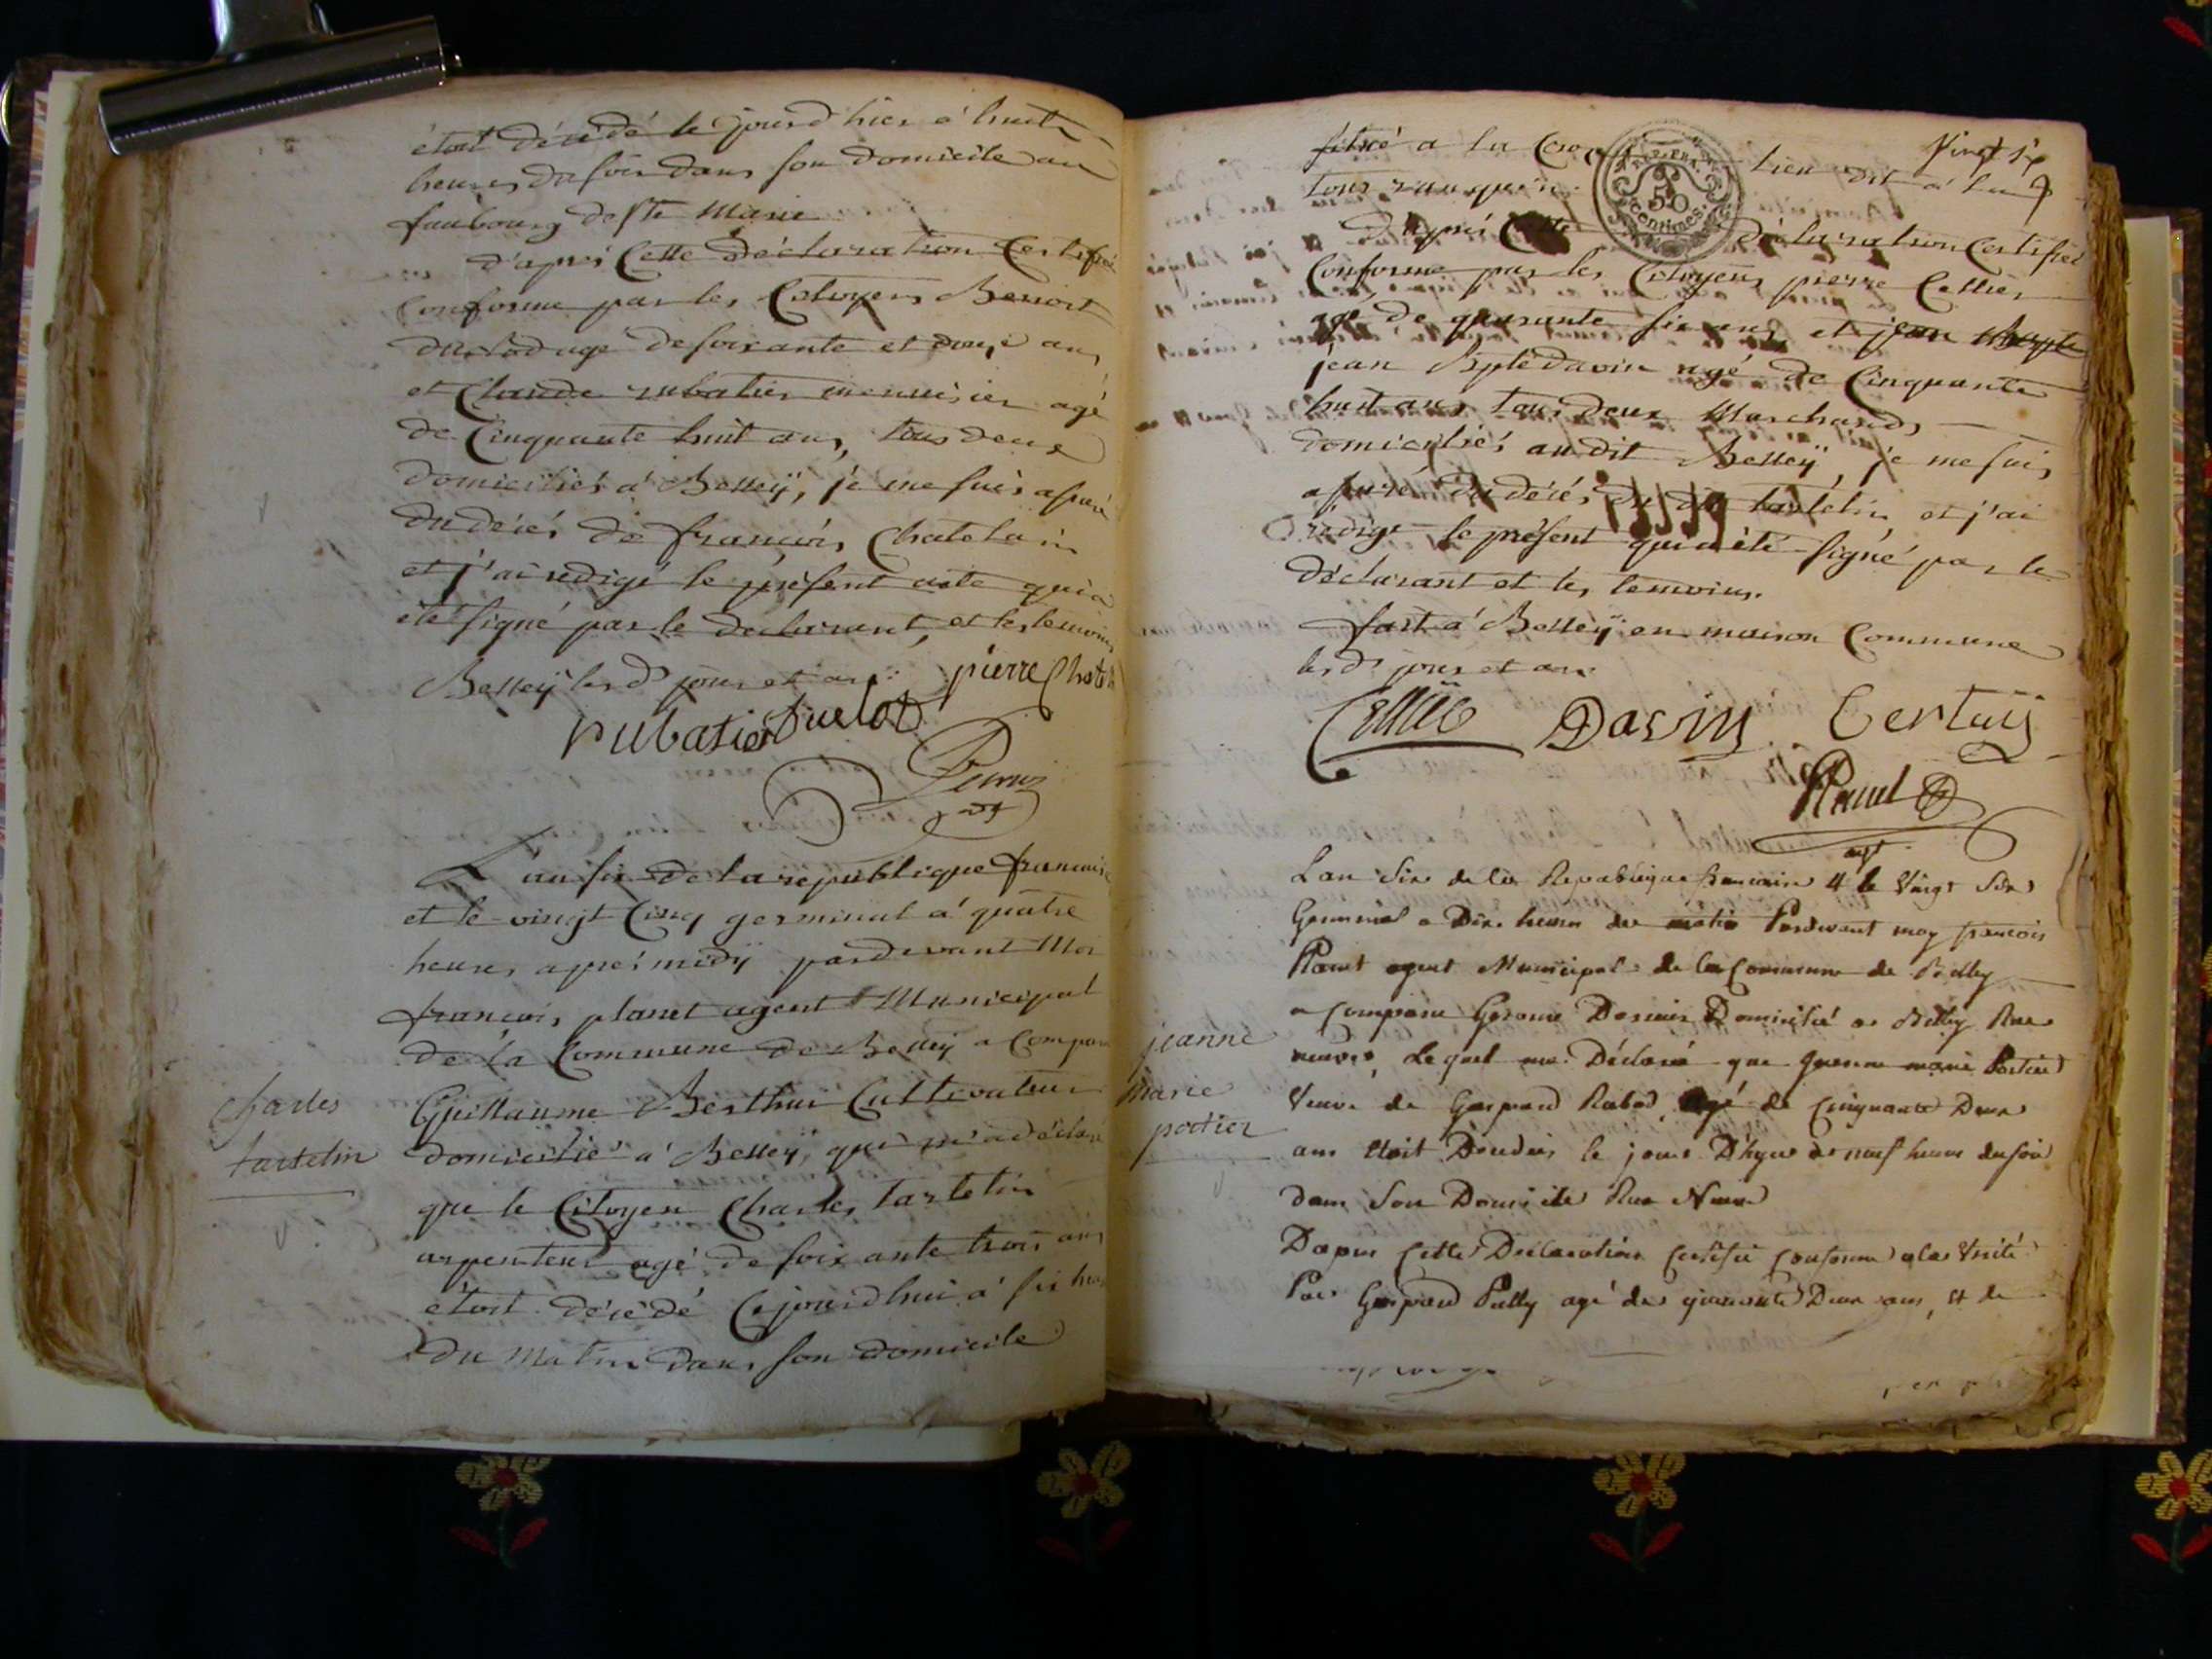 étoit décédé le jourd hier á huit
heures du soir dans son domicile au
faubourg de ste Marie
d'aprés Cette déclaration Certifiée
Conforme par les Citoyens Benoit
agé de soixante et douze ans
et Claude rubatier menuisier agé
de Cinquante huit ans, tous deux
domiciliés á Belleÿ, je me suis assuré
du décés de françois Chatelain
et j'ai redigé le présent acte qui a
été signé par le declarant, et les temoins
Belleÿ les d jour et an
pierre Chatel
rubatier
L'an six de la republique francaise
et le vingt Cinq germinal á quatre
heures aprés midÿ pardevant Moi
francois planet agent Municipal
de la Commune de Belleÿ a Comparu
Charles
tartelin
Guillaume Berthui Cultivateur
domicilié á Belleÿ, qui m'a déclaré
que le Citoyen Charles tartelin
arpenteur agé de soixante trois ans
étoit décédé Cejourdhui á six hres
du Matin dans son domicile
Vingt six
situé a la lieu dit á la
d'aprés Cette déclaration Certifiée
50 Centimes
Conforme par les Citoyens pierre Cellier
agé de quarante six ans, et jean Bapte
jean Bpte davin agé de Cinquante
huit ans tous deux Marchands
domiciliés audit Belleÿ, je me suis
assuré du décés du dit tartelin et j'ai
rédigé le présent qui a été signé par le
déclarant et les temoins.
fait á Belleÿ en maison Commune
les d jour et an
Cellier Davin Bertuij
Planet
agt
L'an Six de la Republique francaise et le Vingt Six
Germinal a Dix heures du matin Pardevant moy francois
Planet agent Municipal de la Commune de Belley
a Comparu Gerome Domicilié a Belley Rue
neuve, Lequel ma Déclaré que Jeanne marie Portier
jeanne
Marie
portier
Veuve de Gaspard Rabod, agé de Cinquante Deux
ans étoit Décédée le jour D'hyer a neuf heures du soir
dans Son Domicile Rue Neuve
Dapres Cette Declaration Certifié Conforme a la Verité
Par Gaspard Pully agé de quarante Deux ans, et de